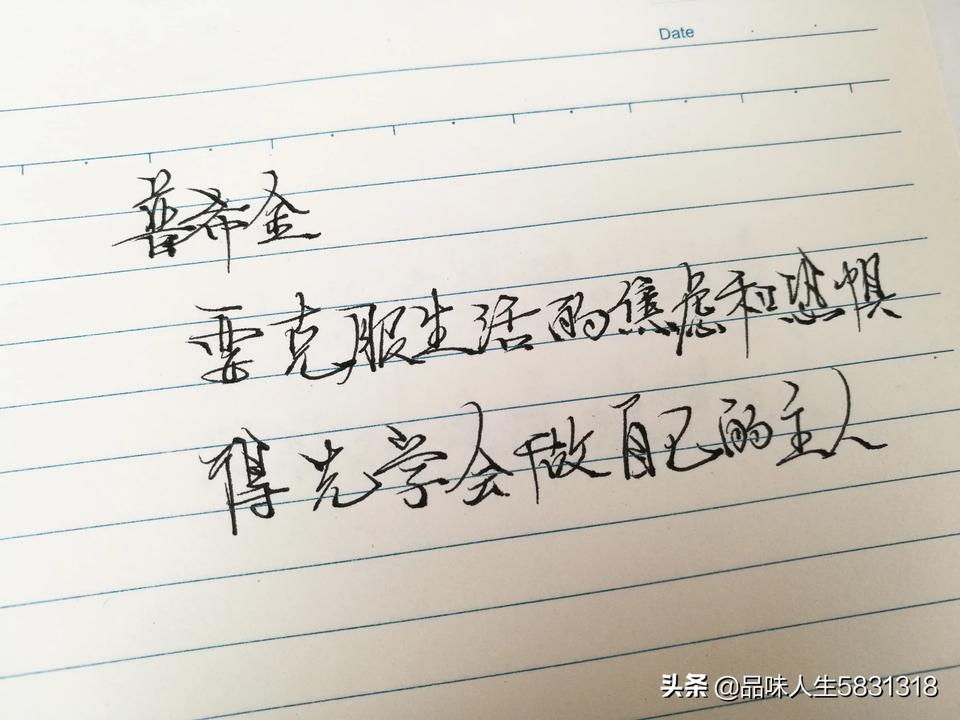 Date
普希金
要克服生活的焦虑和恐惧
得先学会做自己的主人
头条 @品味人生5831318